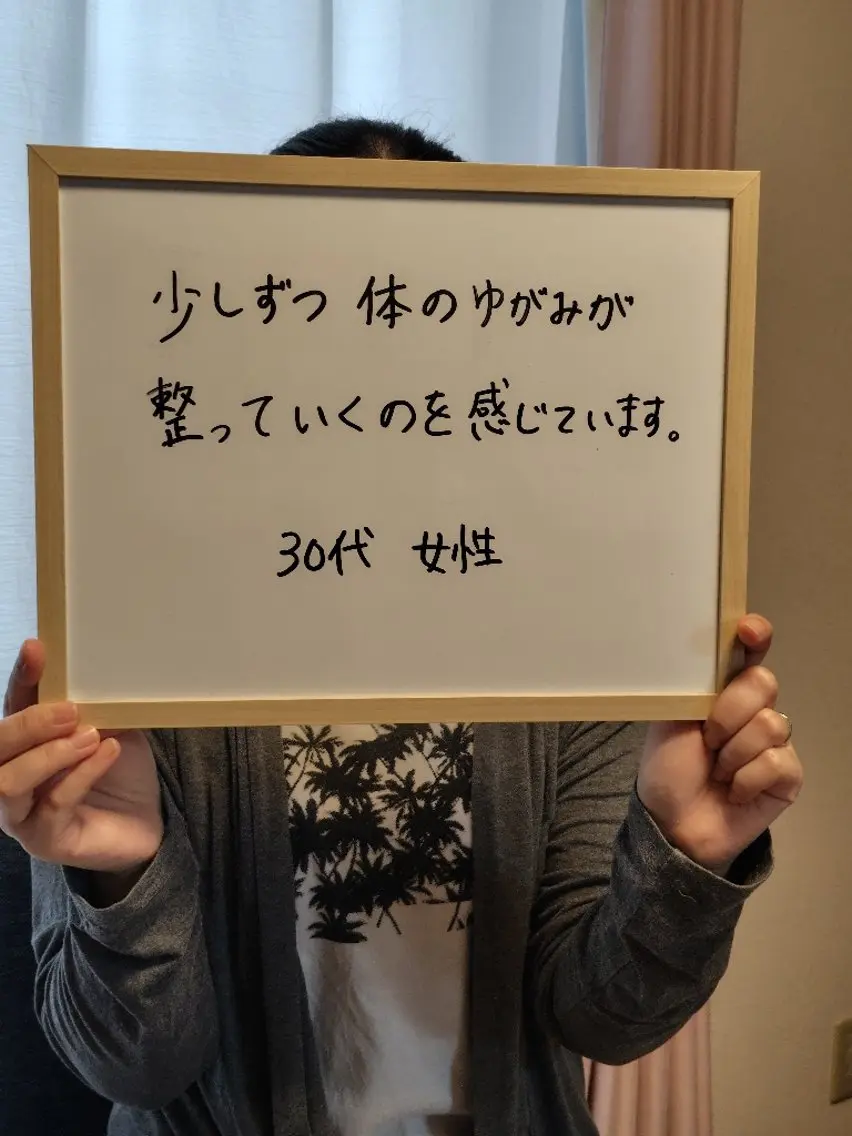 少しずつ 体のゆがみが
整っていくのを感じています。
30代 女性